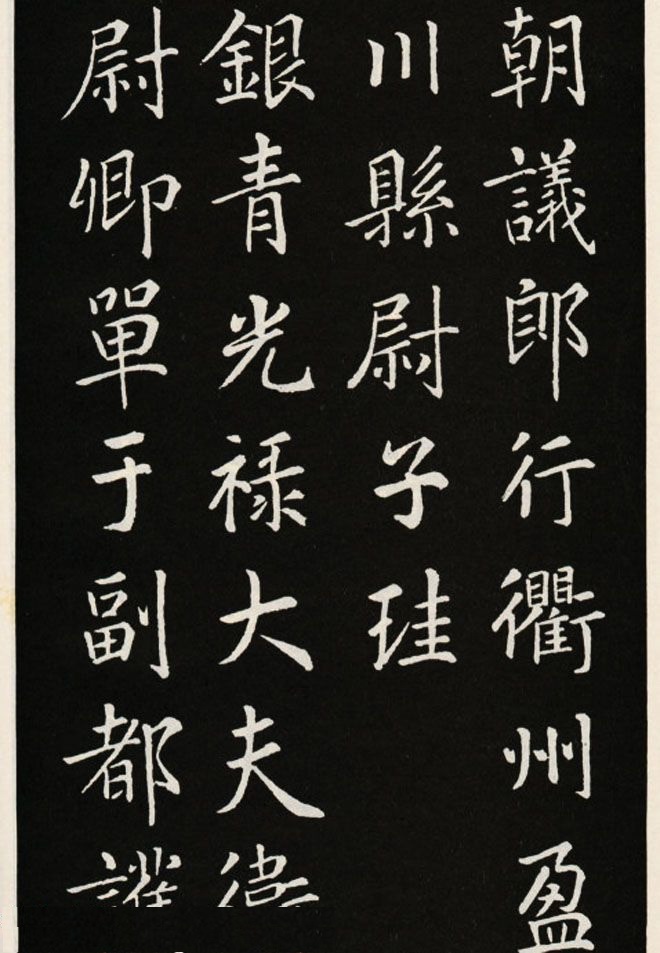 朝議郎行衢州盈
川縣尉子珪
銀青光禄大夫衛
尉卿單于副都護